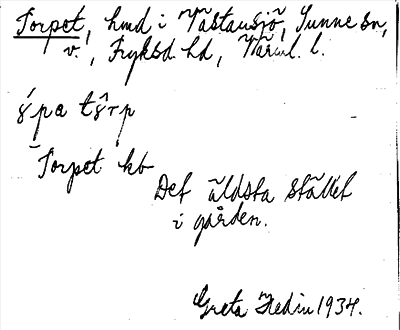 Torpet, hmd i Västansjö, Sunne sn,
v., Fryksd. hd, Värml. l.
Torpet kb
Det äldsta stället
i gården.
Greta Hedin 1934.